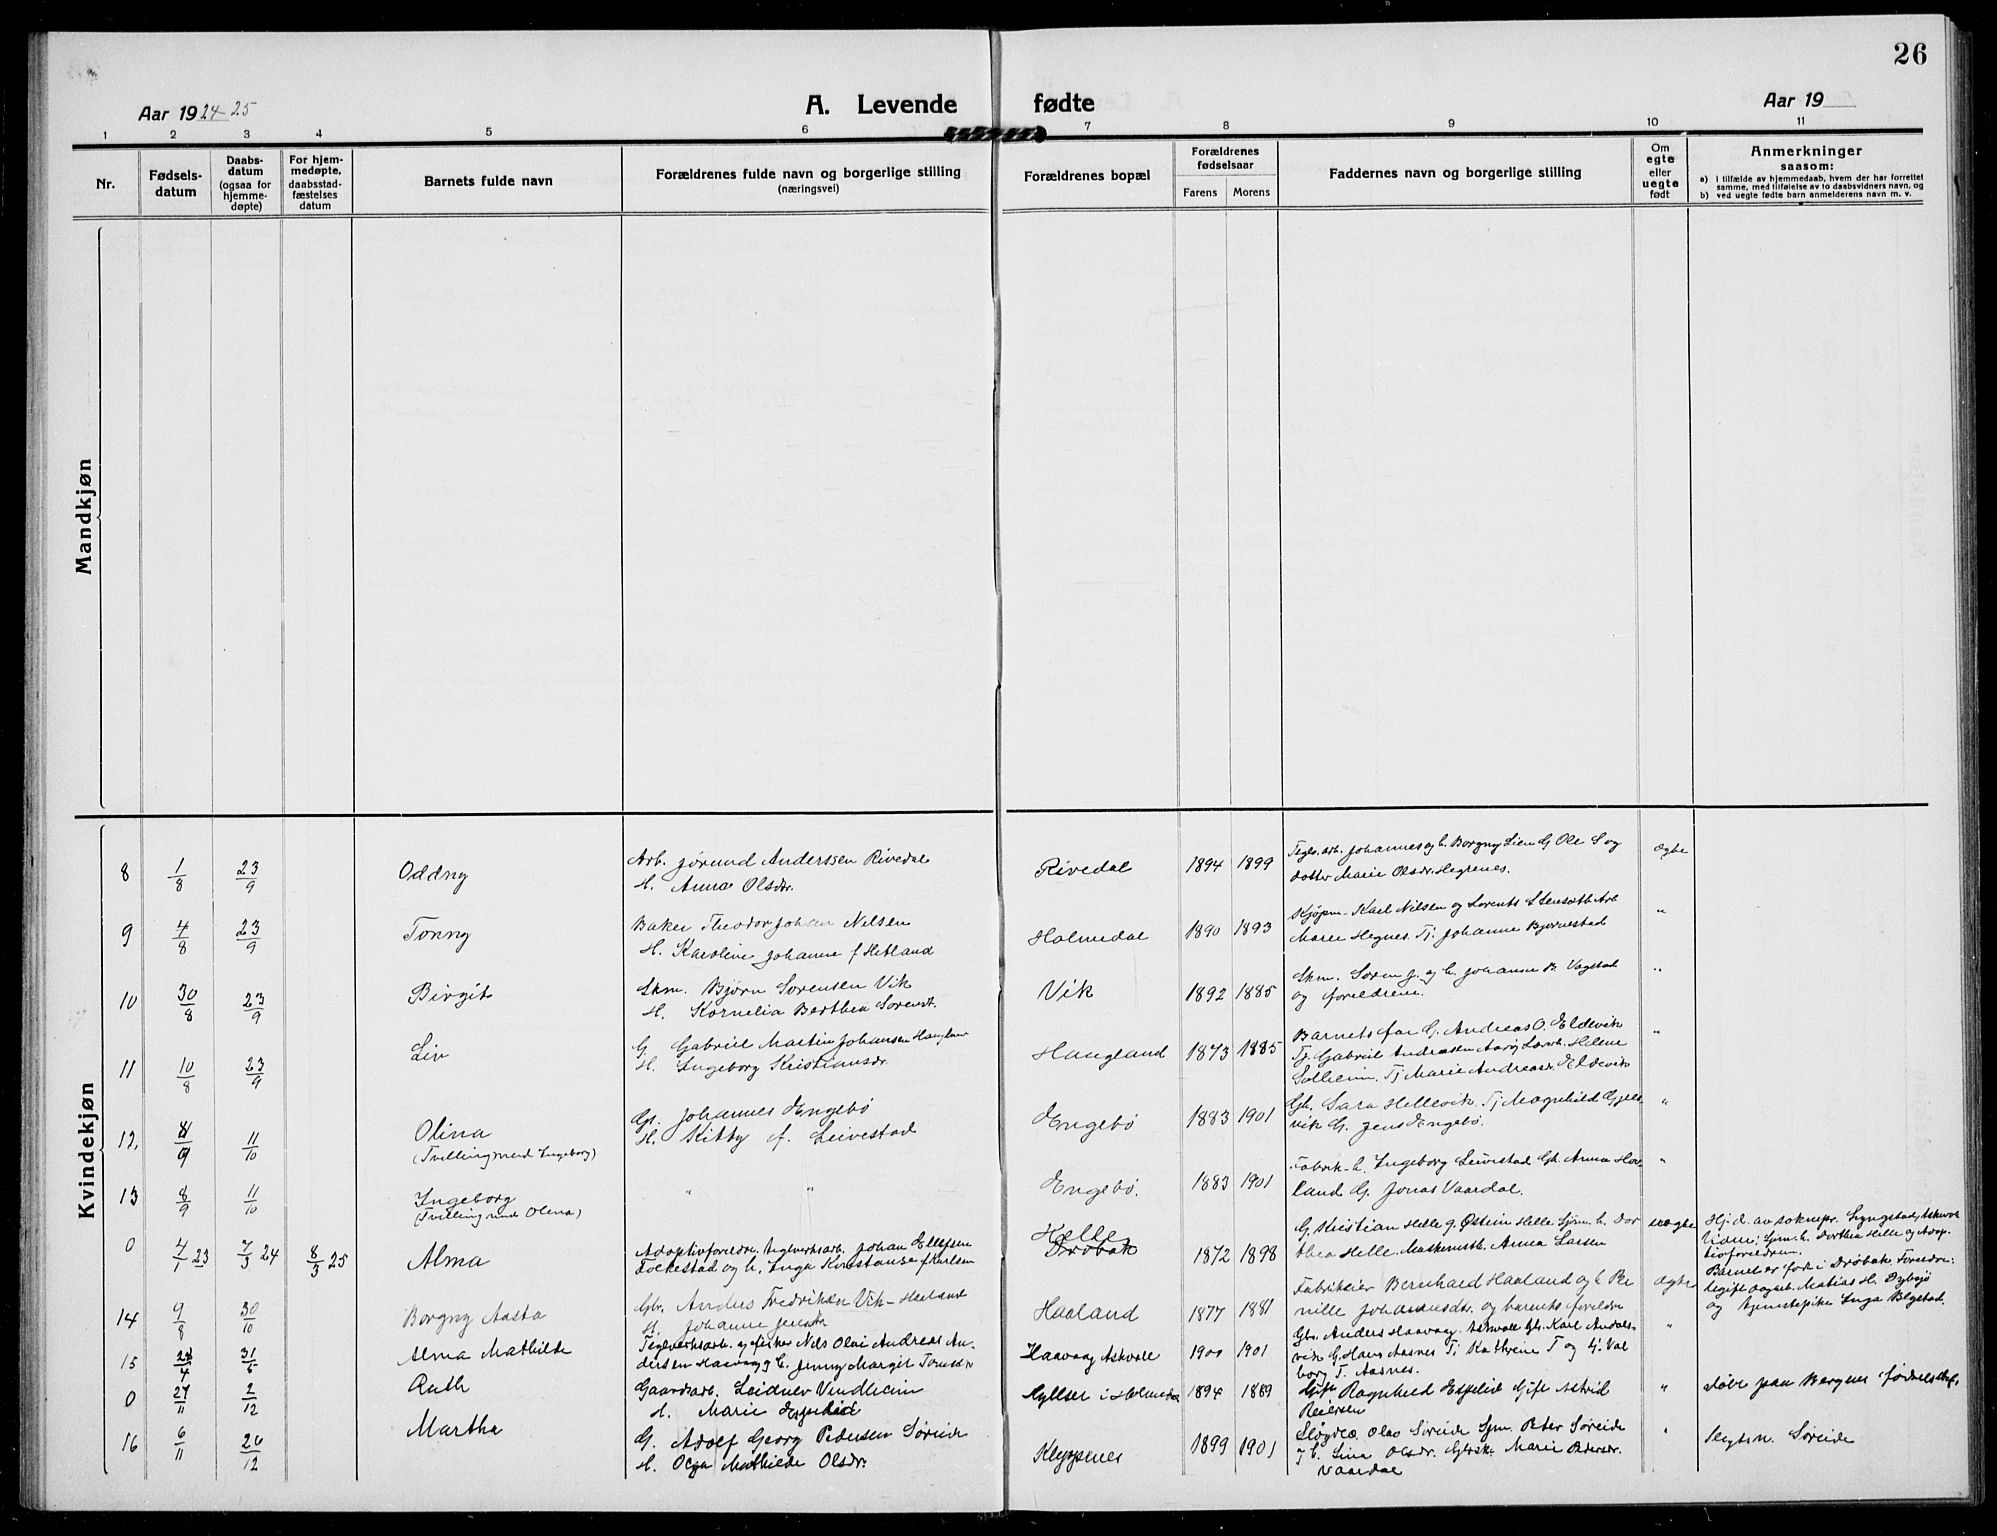 26
Aar 1924-25
A. Levende fødte
Aar 19
1 2 3 4 5 6 7 8 9 10 11
Nr.
Fødsels-
datum
Daabs-
datum
(ogsaa for
hjemme-
døpte)
For hjem-
medøpte,
daabsstad-
fæstelses
datum
Barnets fulde navn
Forældrenes fulde navn og borgerlige stilling
(næringsvei)
Forældrenes bopæl
Forældrenes
fødselsaar
Farens Morens
Faddernes navn og borgerlige stilling
Om
egte
eller
uegte
født
Anmerkninger
saasom:
a) i tilfælde av hjemmedaab, hvem der har forrettet
samme, med tilføielse av to daabsvidners navn, og
b) ved uegte fødte barn anmelderens navn m. v.
Mandkjøn
Kvindekjøn
8 1/8 23/9 Oddny
Arb. Jørund Anderssen Rivedal
H. Anna Olsdr.
Rivedal 1894 1899
Tegls.arb. Johannes og h. Borgny Lien G. Ole S og
dotter Marie Olsdr. Hegrenes.
ægte
9 4/8 23/9 Tonny
Baker Theodor Johan Nilsen
H. Karoline Johanne f Hetland
Holmedal 1890 1893
Kjøpm. Karl Nilsen og Lorents Stensæth Arb
Marie Hegnes. Tj. Johanne Bjørnestad
"
10 30/8 23/9 Birgit
Skm. Bjørn Sørensen Vik
H. Kornelia Berthea Sørensd.
Vik 1892 1885
Skm. Søren J. og h. Johanna B. Vagstad
og foreldrene.
"
11 10/8 23/9 Liv
G Gabriel Martin Johansen Haugland
H. Ingeborg Kristiansdr
Haugland 1873 1885
Barnets far G. Andreas O. Eldevik
Tj. Gabriel Andreasen Helene
Solheim. Tj Marie Andreasdr. Eldevik
"
12. 8/9 11/10 Olina
(Tvilling med Ingeborg)
Gb. Johannes Engebø
H. Kitty f. Leivestad
Engebø 1883 1901
Gb. Sara Hellevik. Tj Magnhild Gjels-
vik G. Jens Engebø.
"
13 8/9 11/10 Ingeborg
(Tvilling med Olina)
" "
Engebø. 1883 1901
Fabrik- h. Ingeborg Leivestad Gb. Anna Hov-
land G. Jonas Vaardal.
"
0 4/1 23 7/3 24 8/3 25 Alma
Adoptivforeldre. Teglverksarb. Johan Ellefsen
Folkestad og h. Inga Konstanse f Karlsen
Helle
Drøbak 1872 1898
G. Kristian Helle g. Østein Helle Sjøm. h. Dor
thea Helle. Maskinistb. Anna Larsen
uægte
Hj. d. av soknepr. Lyngstad, Askvol
Vidne: Sjøm. h. Dorthea Helle og Adop-
tivforeldrene.
Barnet er født i Drøbak. Foreldre:
ugift dagarb. Matias H. Dybsjø
og tjenestepike Inga Blystad.
14 9/8 30/10 Borgny Aasta
Gbr. Anders Fredriksen Vik - Haaland
H. Johanne Jensdr
Haaland 1877 1881
Fabrikeier Bernhard Haaland og h Per
nille Johannesdr. og barnets foreldre
ægte
15 24/4 31/8 Alma Mathilde
Teglverksarb. og fisker Nels Olai Andreas An-
dersen Haavaag og h. Jenny Margit Tomsdr
Haavaag Askvoll 1900 1901
Gbr. Anders Haavaag. Askvoll Gbr. Karl Andals-
vik G. Hans Aasnes Tj Kathrine T og G. Val
borg T. Aasnes.
"
0 27/11 2/12 Ruth
Gaardarb. Leidulv Vindheim
H. Marie Espelid
Hyllser i Holmedal 1894 1889
Gift Ragnhild Espelid Gift Astrid
Reiersen
"
Døbt paa Bergens fødselshj.
16 6/11 26/12 Martha
G. Adolf Georg Pedersen Søreide
H. Olga Mathilde Olsdr.
Kleppenes 1899 1901
Olav Søreide Sjm. Peter Søreide
T h. Lina Olsdr. Marie Pedersdr.
Vaardal
"
Søreide